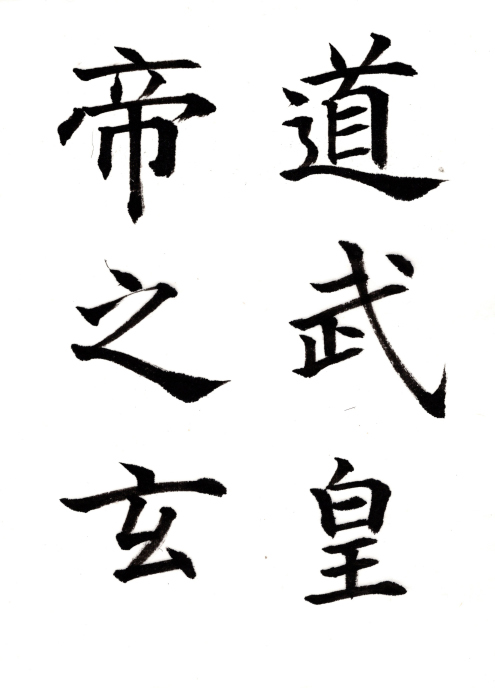 道武皇
帝之玄